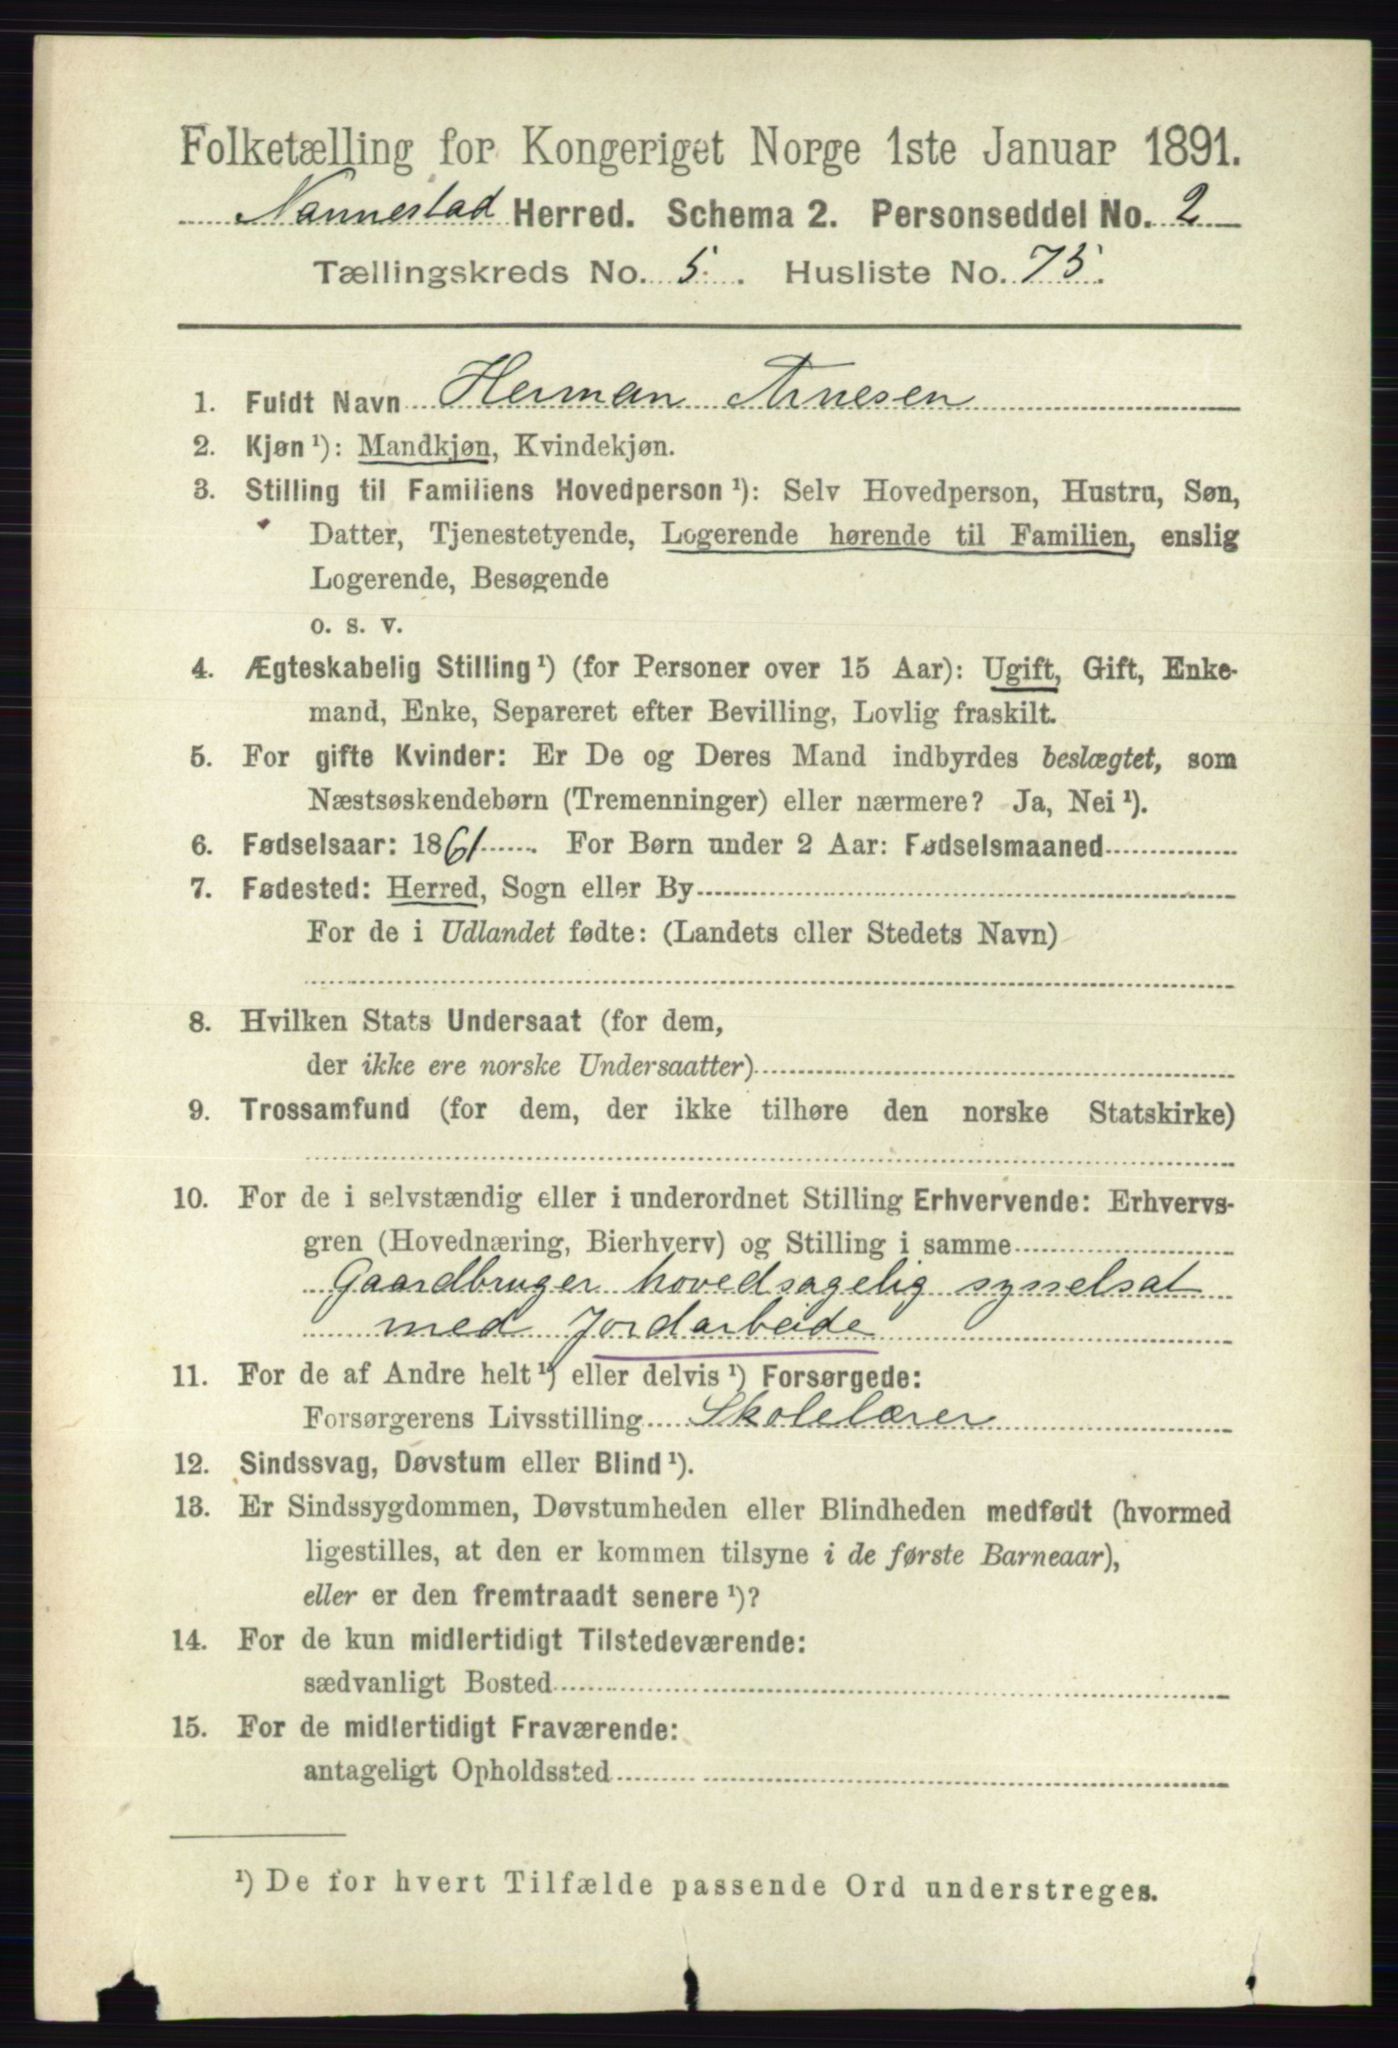 Folketælling for Kongeriget Norge 1ste Januar 1891.
Nannestad Herred. Schema 2. Personseddel No. 2
Tællingskreds No. 5. Husliste No. 75.
1. Fuldt Navn Herman Arnesen
2. Kjøn ¹): Mandkjøn, Kvindekjøn.
3. Stilling til Familiens Hovedperson ¹): Selv Hovedperson, Hustru, Søn,
Datter, Tjenestetyende, Logerende hørende til Familien, enslig
Logerende, Besøgende
o. s. v.
4. Ægteskabelig Stilling ¹) (for Personer over 15 Aar): Ugift, Gift, Enke-
mand, Enke, Separeret efter Bevilling, Lovlig fraskilt.
5. For gifte Kvinder: Er De og Deres Mand indbyrdes beslægtet, som
Næstsøskendebørn (Tremenninger) eller nærmere? Ja, Nei ¹).
6. Fødselsaar: 1861. For Børn under 2 Aar: Fødselsmaaned
7. Fødested: Herred, Sogn eller By
For de i Udlandet fødte: (Landets eller Stedets Navn)
8. Hvilken Stats Undersaat (for dem,
der ikke ere norske Undersaatter)
9. Trossamfund (for dem, der ikke tilhøre den norske Statskirke)
10. For de i selvstændig eller i underordnet Stilling Erhvervende: Erhvervs-
gren (Hovednæring, Bierhverv) og Stilling i samme
Gaardbruger hovedsagelig sysselsat
med Jordarbeide
11. For de af Andre helt ¹) eller delvis ¹) Forsørgede:
Forsørgerens Livsstilling Skolelærer
12. Sindssvag, Døvstum eller Blind ¹).
13. Er Sindssygdommen, Døvstumheden eller Blindheden medfødt (hvormed
ligestilles, at den er kommen tilsyne i de første Barneaar),
eller er den fremtraadt senere ¹)?
14. For de kun midlertidigt Tilstedeværende:
sædvanligt Bosted
15. For de midlertidigt Fraværende:
antageligt Opholdssted
¹) De for hvert Tilfælde passende Ord understreges.